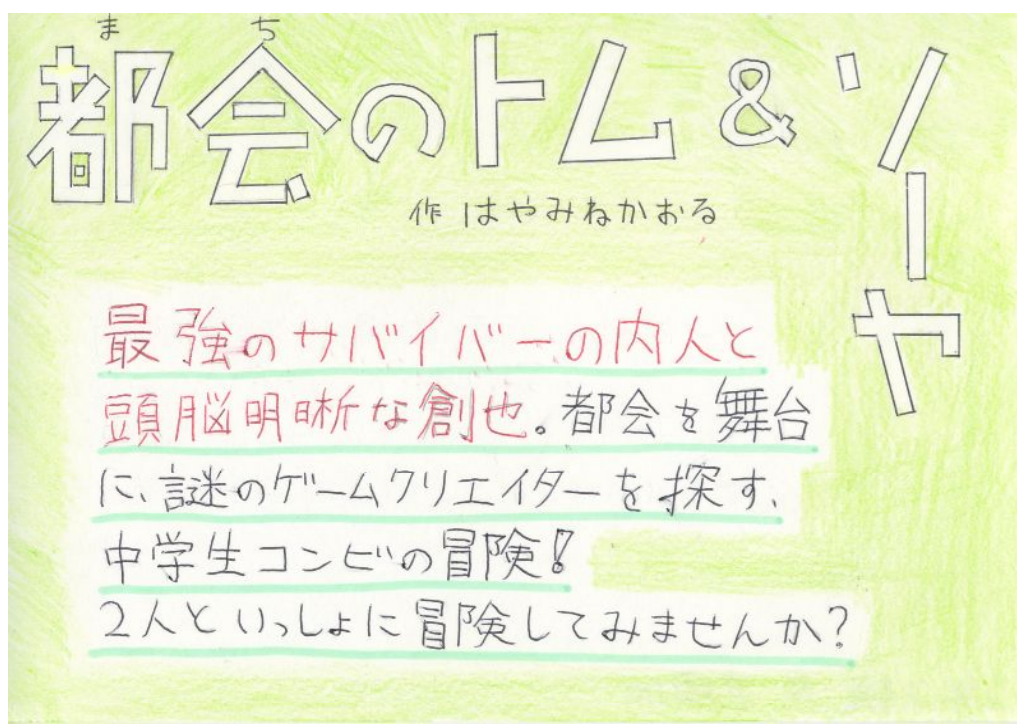 まち
都会のトム&ソーヤ
作 はやみねかおる
最強のサバイバーの内人と
頭脳明晰な創也。都会を舞台
に、謎のゲームクリエイターを探す、
中学生コンビの冒険!
2人といっしょに冒険してみませんか?